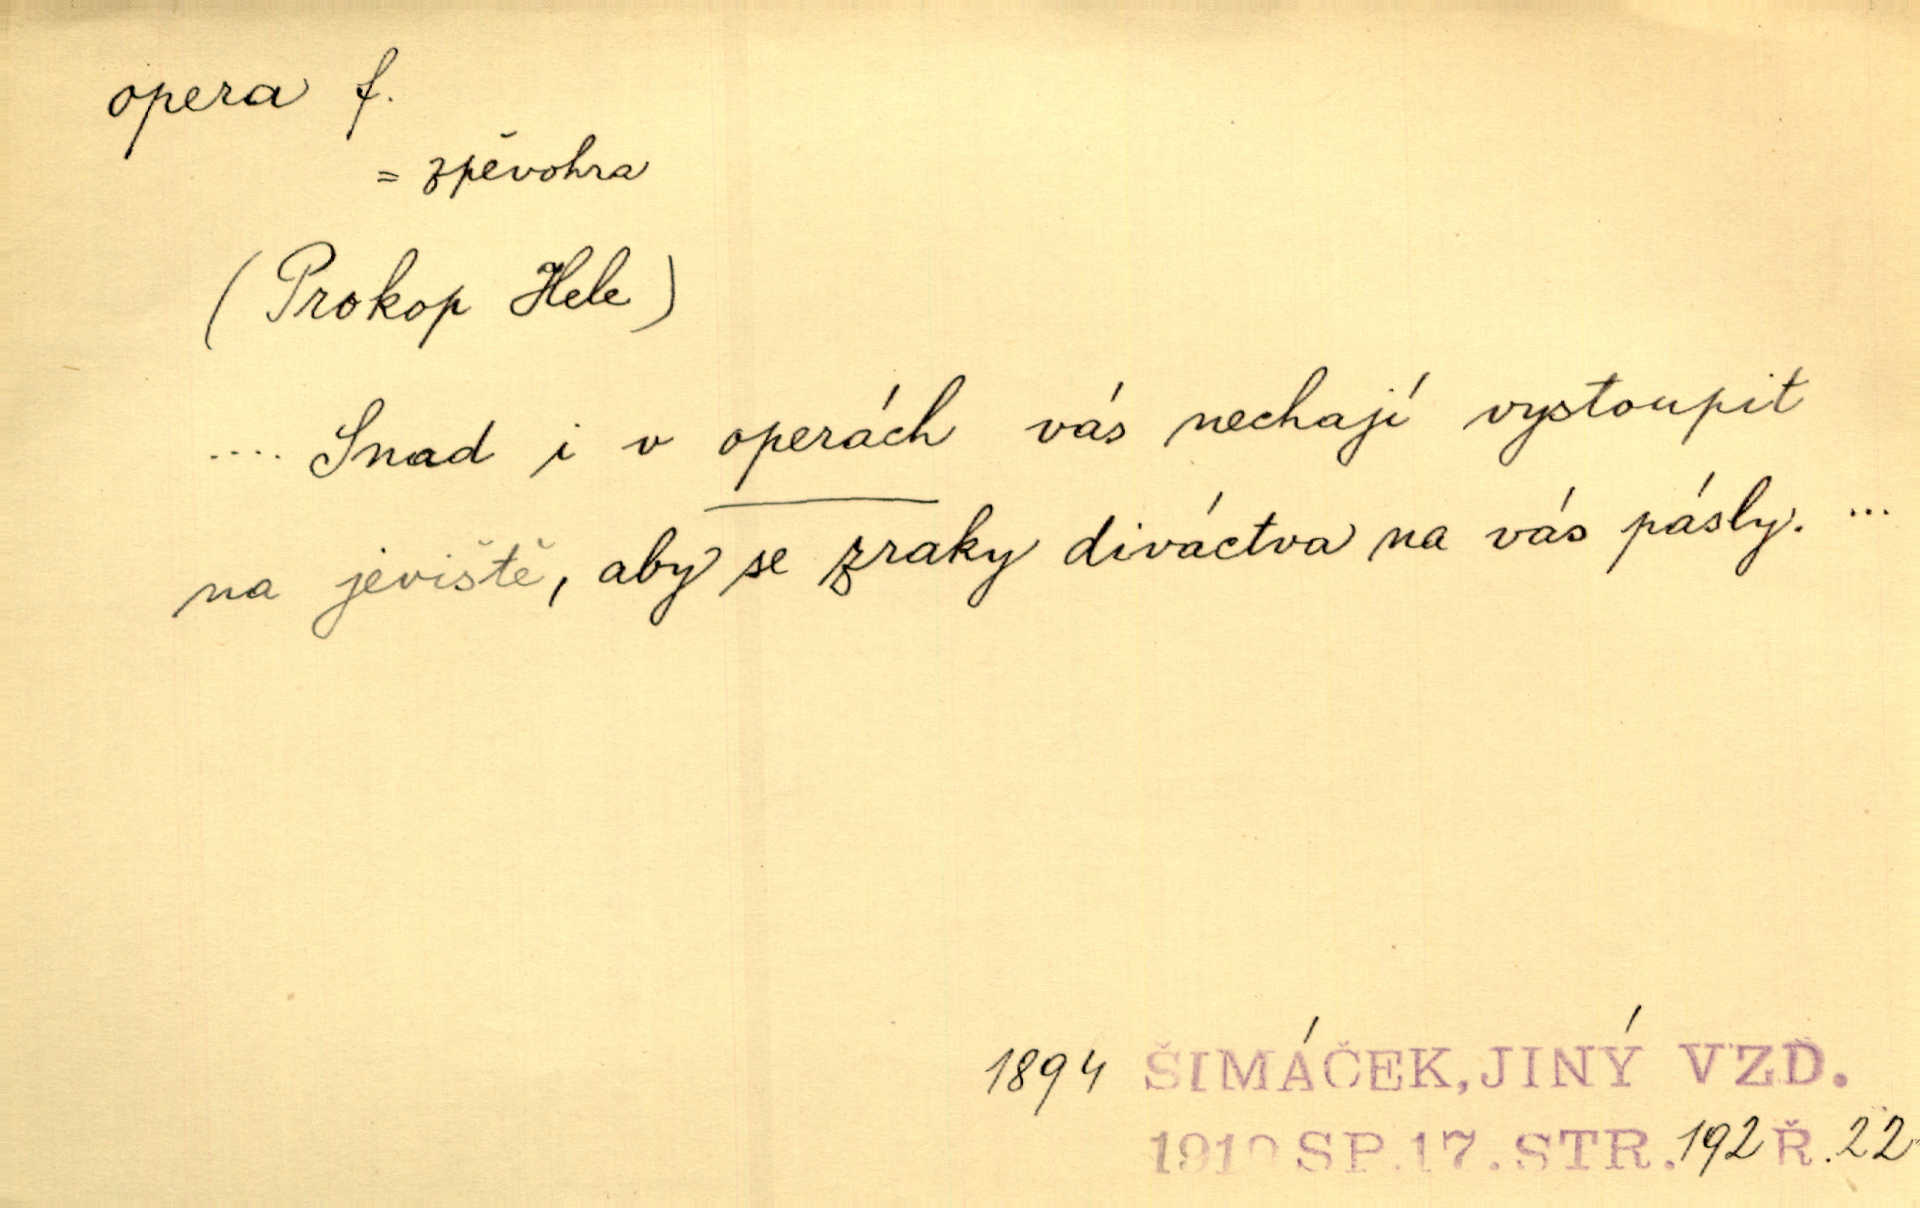 opera f.
= zpěvohra
(Prokop Hele)
.... Snad i v operách vás nechají vystoupit
na jeviště, aby se zraky diváctva na vás pásly. ...
1894 ŠIMÁČEK, JINÝ VZD.
1910 SP. 17. STR. 192 Ř. 22